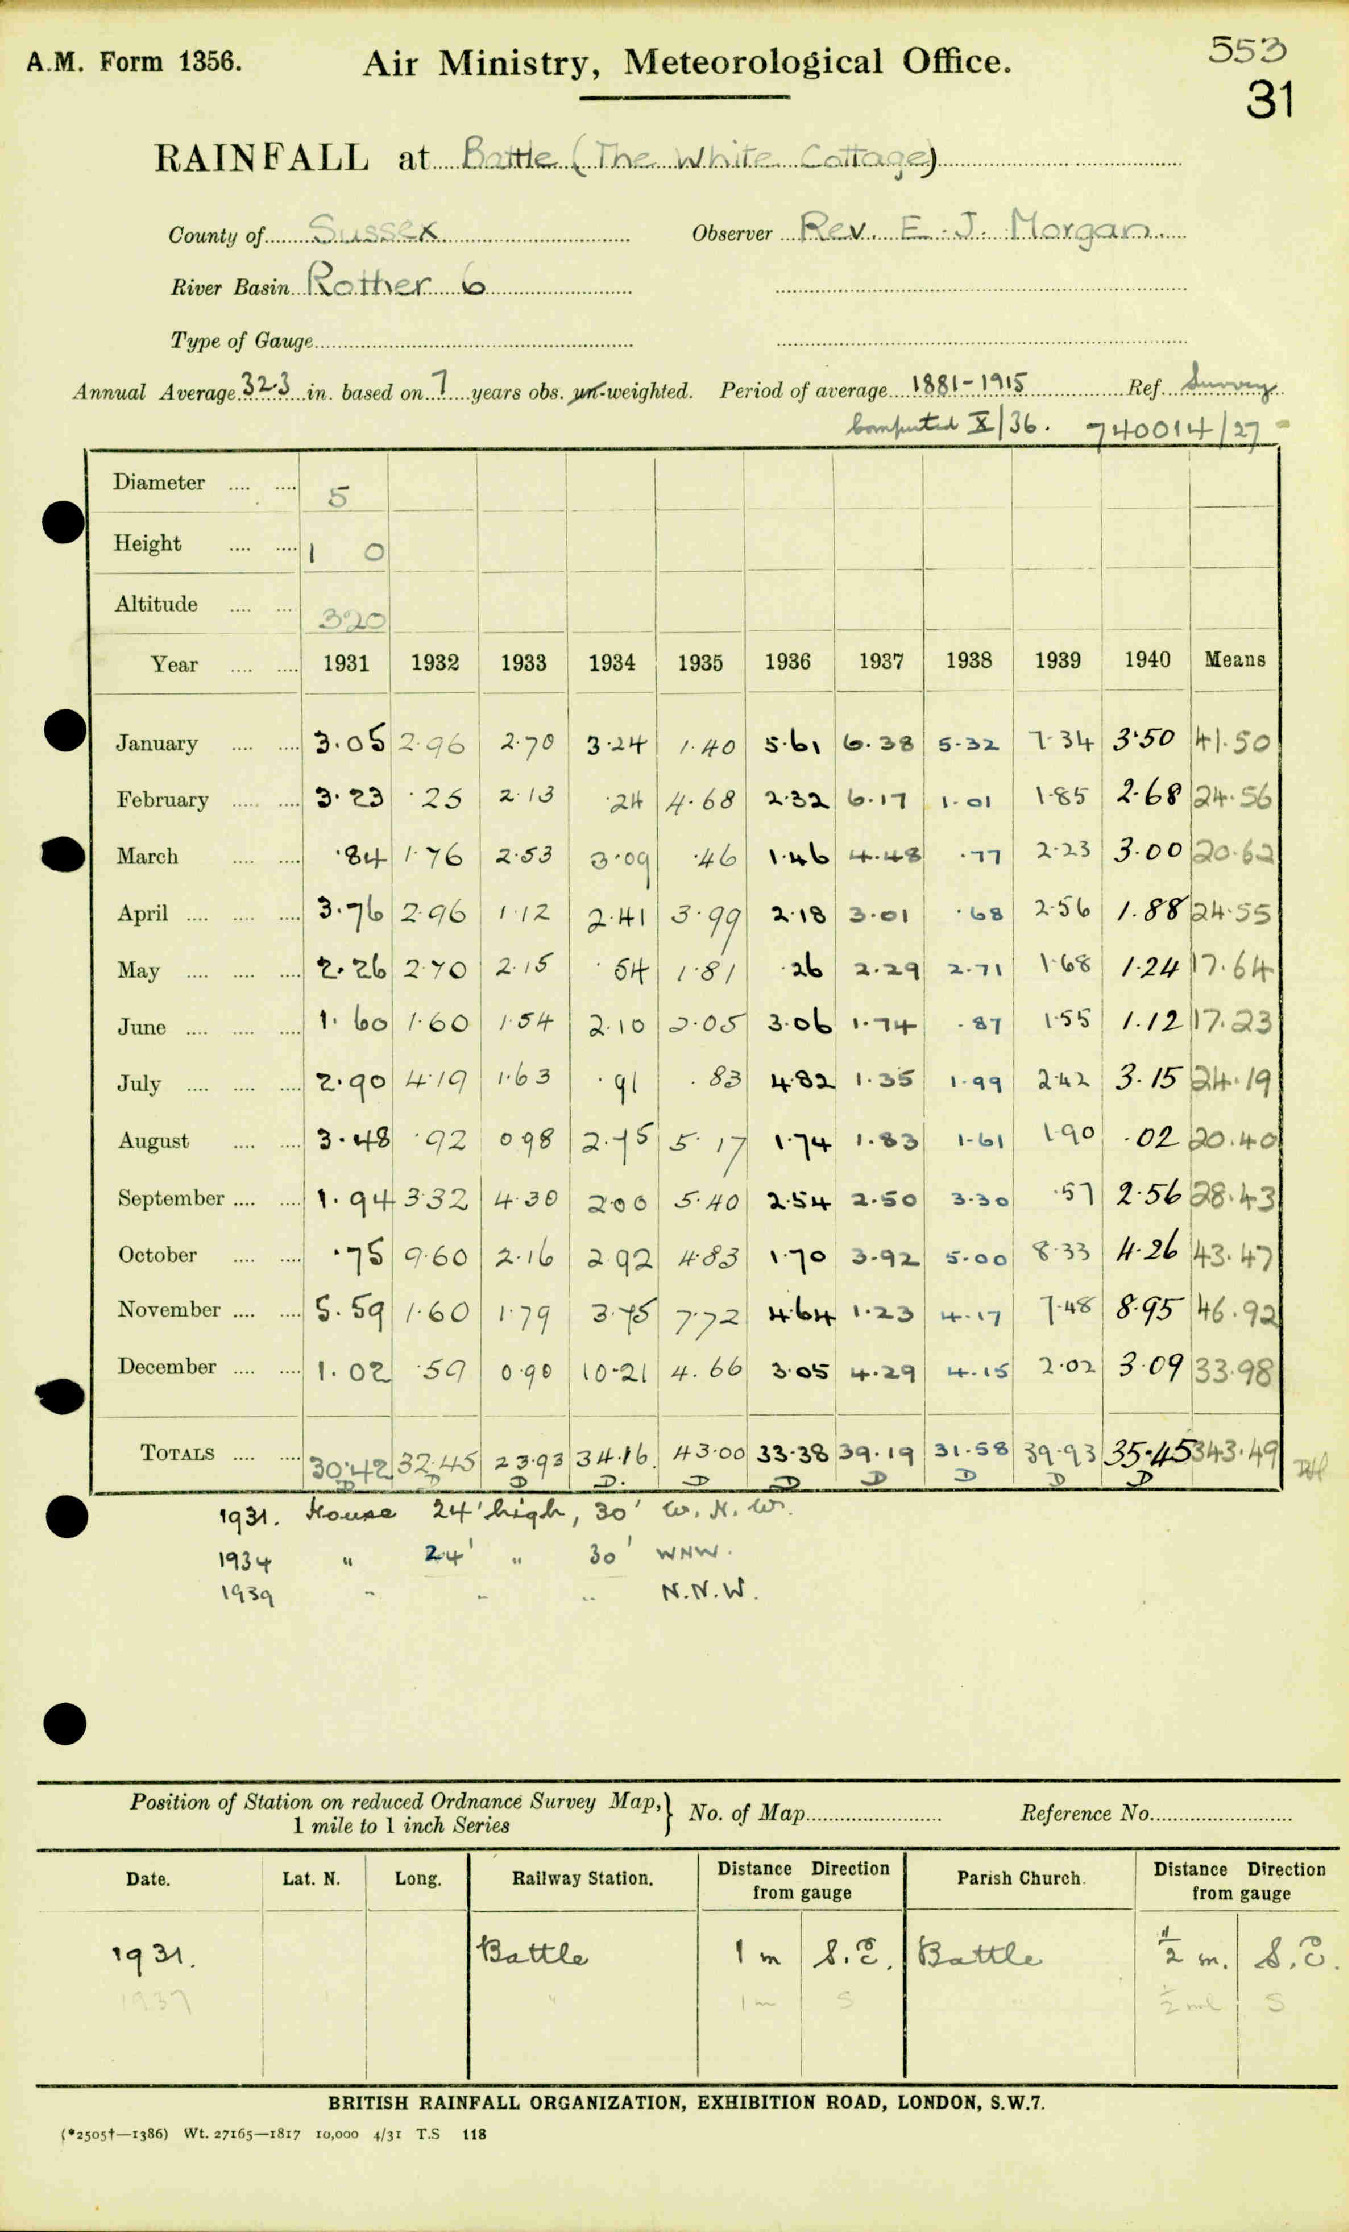 A.M. Form 1356. Air Ministry, Meteorological Office. 553
31
RAINFALL at Battle (The White Cottage)
County of Sussex Observer Rev. E. J. Morgan.
River Basin Rother 6
Type of Gauge
Annual Average 32.3 in. based on 7 years obs. un-weighted. Period of average 1881-1915 Ref. Survey
Computed X/36. 740014/27
Diameter .... .... 5
Height .... .... 1 0
Altitude .... .... 320
Year .... .... 1931 1932 1933 1934 1935 1936 1937 1938 1939 1940 Means
January .... .... 3.05 2.96 2.70 3.24 1.40 5.61 6.38 5.32 7.34 3.50 41.50
February .... .... 3.23 .25 2.13 .24 4.68 2.32 6.17 1.01 1.85 2.68 24.56
March .... .... .84 1.76 2.53 3.09 .46 1.46 4.48 .77 2.23 3.00 20.62
April .... .... .... 3.76 2.96 1.12 2.41 3.99 2.18 3.01 .68 2.56 1.88 24.55
May .... .... .... 2.26 2.70 2.15 .54 1.81 .26 2.29 2.71 1.68 1.24 17.64
June .... .... .... 1.60 1.60 1.54 2.10 2.05 3.06 1.74 .87 1.55 1.12 17.23
July .... .... .... 2.90 4.19 1.63 .91 .83 4.82 1.35 1.99 2.42 3.15 24.19
August .... .... 3.48 .92 0.98 2.75 5.17 1.74 1.83 1.61 1.90 .02 20.40
September .... .... 1.94 3.32 4.30 2.00 5.40 2.54 2.50 3.30 .57 2.56 28.43
October .... .... .75 9.60 2.16 2.92 4.83 1.70 3.92 5.00 8.33 4.26 43.47
November .... .... 5.59 1.60 1.79 3.75 7.72 4.64 1.23 4.17 7.48 8.95 46.92
December .... .... 1.02 .59 0.90 10.21 4.66 3.05 4.29 4.15 2.02 3.09 33.98
TOTALS .... .... 30.42 32.45 23.93 34.16 43.00 33.38 39.19 31.58 39.93 35.45 343.49
D D D D. D D D D D D
1931. House 24' high, 30' W. N. W.
1934 " 24' " 30' WNW.
1939 " " " N.N.W.
Position of Station on reduced Ordnance Survey Map, } No. of Map Reference No.
1 mile to 1 inch Series
Date. Lat. N. Long. Railway Station. Distance Direction from gauge Parish Church. Distance Direction from gauge
1931. Battle 1 m S.E. Battle 1/2 m. S.E.
1937 " 1 m S " 1/2 ml S
BRITISH RAINFALL ORGANIZATION, EXHIBITION ROAD, LONDON, S.W.7.
(*2505†—1386) Wt. 27165—1817 10,000 4/31 T.S 118